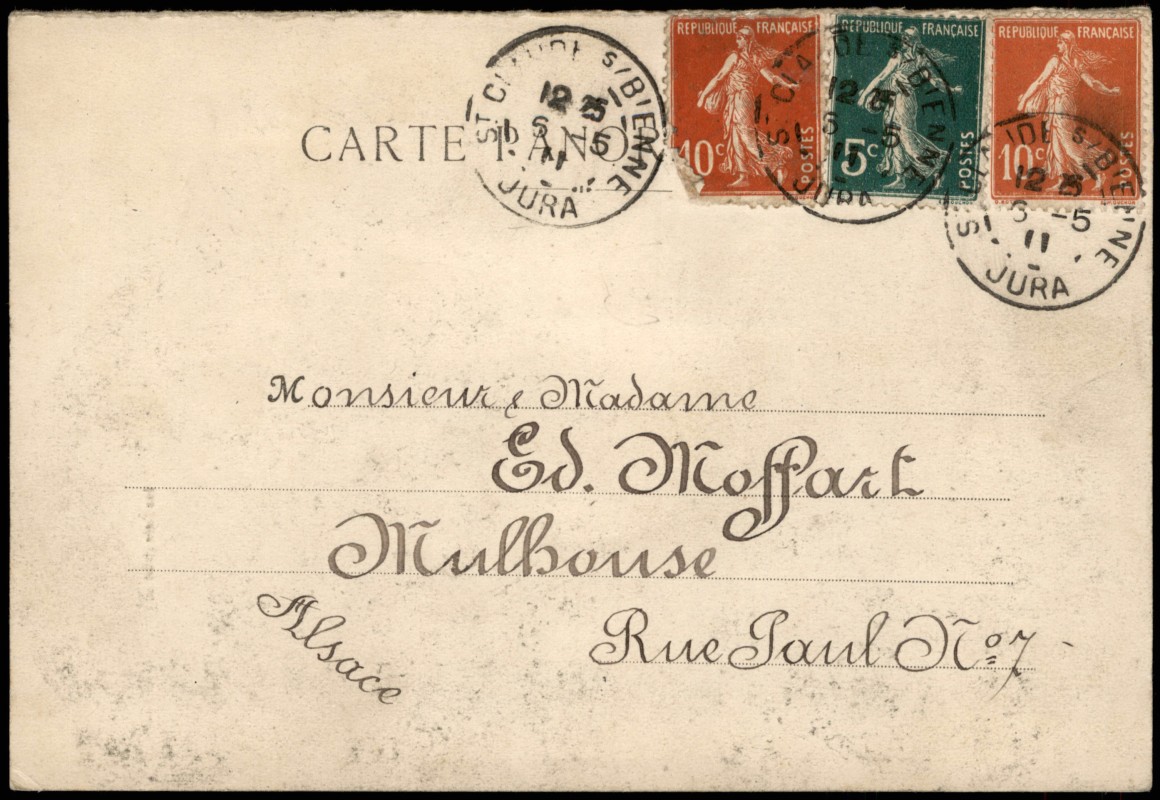 CARTE PANO
RÉPUBLIQUE FRANÇAISE
10c
POSTES
RÉPUBLIQUE FRANÇAISE
5c
POSTES
RÉPUBLIQUE FRANÇAISE
10c
POSTES
ST CLAUDE S/BIENNE
12 25
6 -5
11
JURA
ST CLAUDE S/BIENNE
12 25
6 -5
11
JURA
ST CLAUDE S/BIENNE
12 25
6 -5
11
JURA
Monsieur & Madame
Ed. Moffart
Mulhouse
Alsace
Rue Paul No. 7